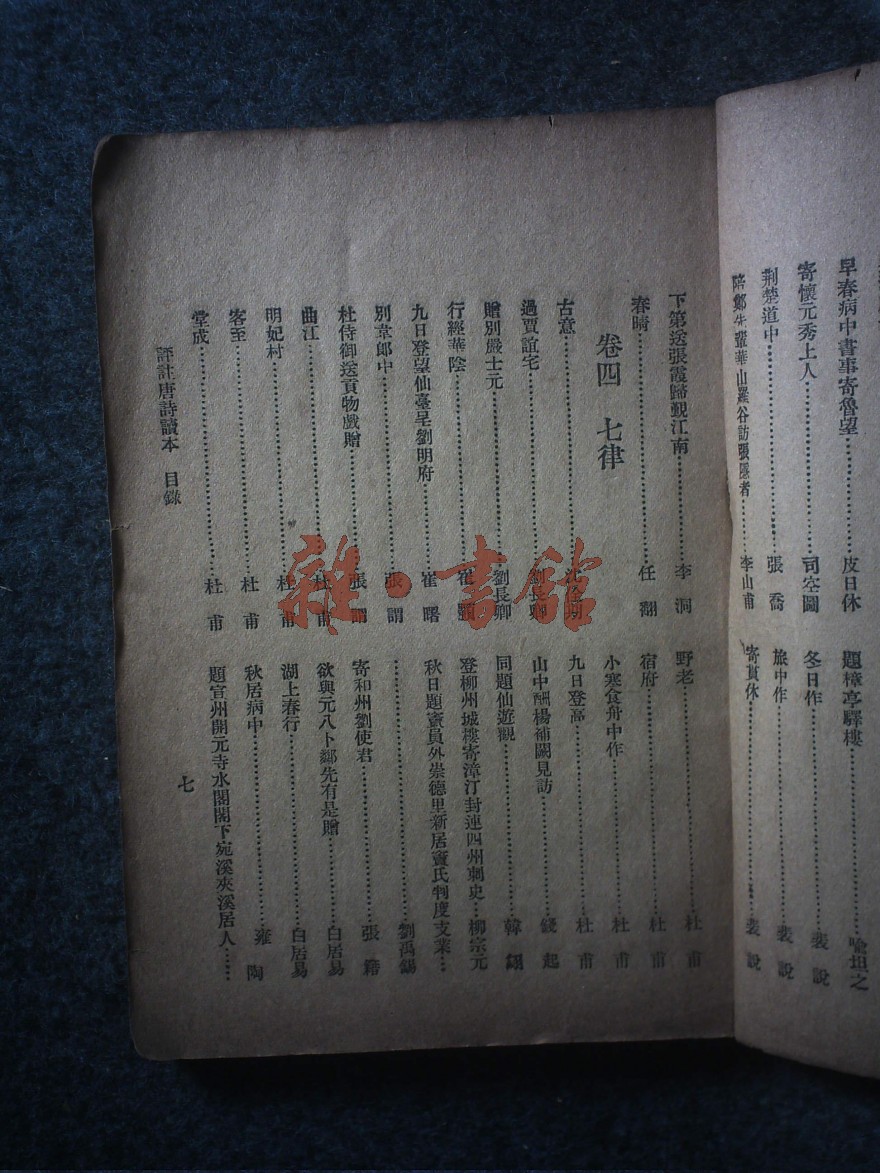 早春病中書事寄魯望……皮日休
寄懷元秀上人……司空圖
荆楚道中……張喬
陪鄭先輩華山羅谷訪張隱者……李山甫
題樟亭驛樓……喩坦之
冬日作……裴說
旅中作……裴說
寄貫休……裴說
下第送張霞歸覲江南……李洞
春晴……任翻
卷四 七律
古意……沈佺期
過賈誼宅……劉長卿
贈別嚴士元……劉長卿
行經華陰……崔顥
九日登望仙臺呈劉明府……崔曙
別韋郎中……張謂
杜侍御送貢物戲贈……張謂
曲江……杜甫
明妃村……杜甫
客至……杜甫
堂成……杜甫
野老……杜甫
宿府……杜甫
小寒食舟中作……杜甫
九日登高……杜甫
山中酬楊補闕見訪……錢起
同題仙遊觀……韓翃
登柳州城樓寄漳汀封連四州刺史…柳宗元
秋日題竇員外崇德里新居竇氏判度支業……
……劉禹錫
寄和州劉使君……張籍
欲與元八卜鄰先有是贈……白居易
湖上春行……白居易
秋居病中……雍陶
題宣州開元寺水閣閣下宛溪夾溪居人……
評註唐詩讀本 目錄
七
雜·書館